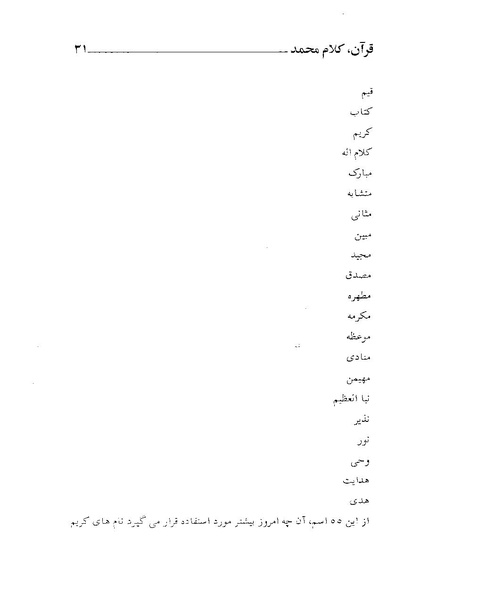 قرآن، کلام محمد ۳۱
قیم
کتاب
کریم
کلام اله
مبارک
متشابه
مثانی
مبین
مجید
مصدق
مطهره
مکرمه
مرعظه
منادی
مهیمن
نبا العظیم
نذیر
نور
وحی
هدایت
هدی
از این ۵۵ اسم، آن چه امروز بیشتر مورد استفاده قرار می گیرد نام های کریم